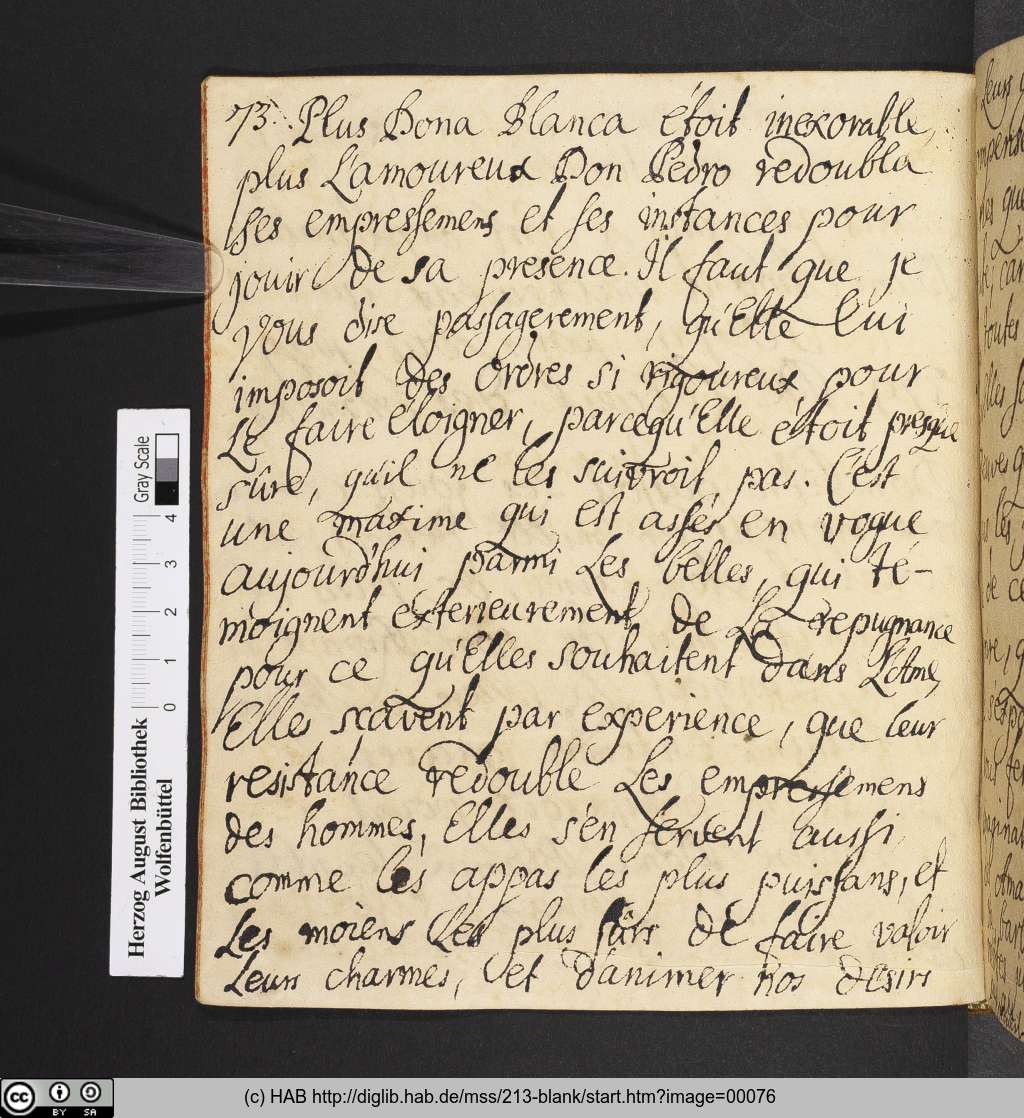 73. Plus Dona Blanca étoit inexorable,
plus L'amoureux Don Pedro redoubla
ses empressemens et ses instances pour
jouir de sa presence. Il faut que je
vous dise passagerement, qu'Elle lui
imposoit des Ordres si rigoureux pour
Le faire Eloigner, parcequ'Elle étoit presque
sûre, qu'il ne les suivroit pas. C'est
une maxime qui est assés en vogue
aujourd'hui parmi Les belles, qui té-
moignent exterieurement de La repugnance
pour ce qu'Elles souhaitent dans L'Ame,
Elles sçavent par experience, que leur
resistance redouble Les empressemens
des hommes, Elles s'en servent aussi
comme les appas les plus puissans, et
Les moiens Les plus sûrs de faire valoir
Leurs charmes, et d'animer nos desirs
Gray Scale
0 1 2 3 4
Herzog August Bibliothek
Wolfenbüttel
cc BY SA
(c) HAB http://diglib.hab.de/mss/213-blank/start.htm?image=00076